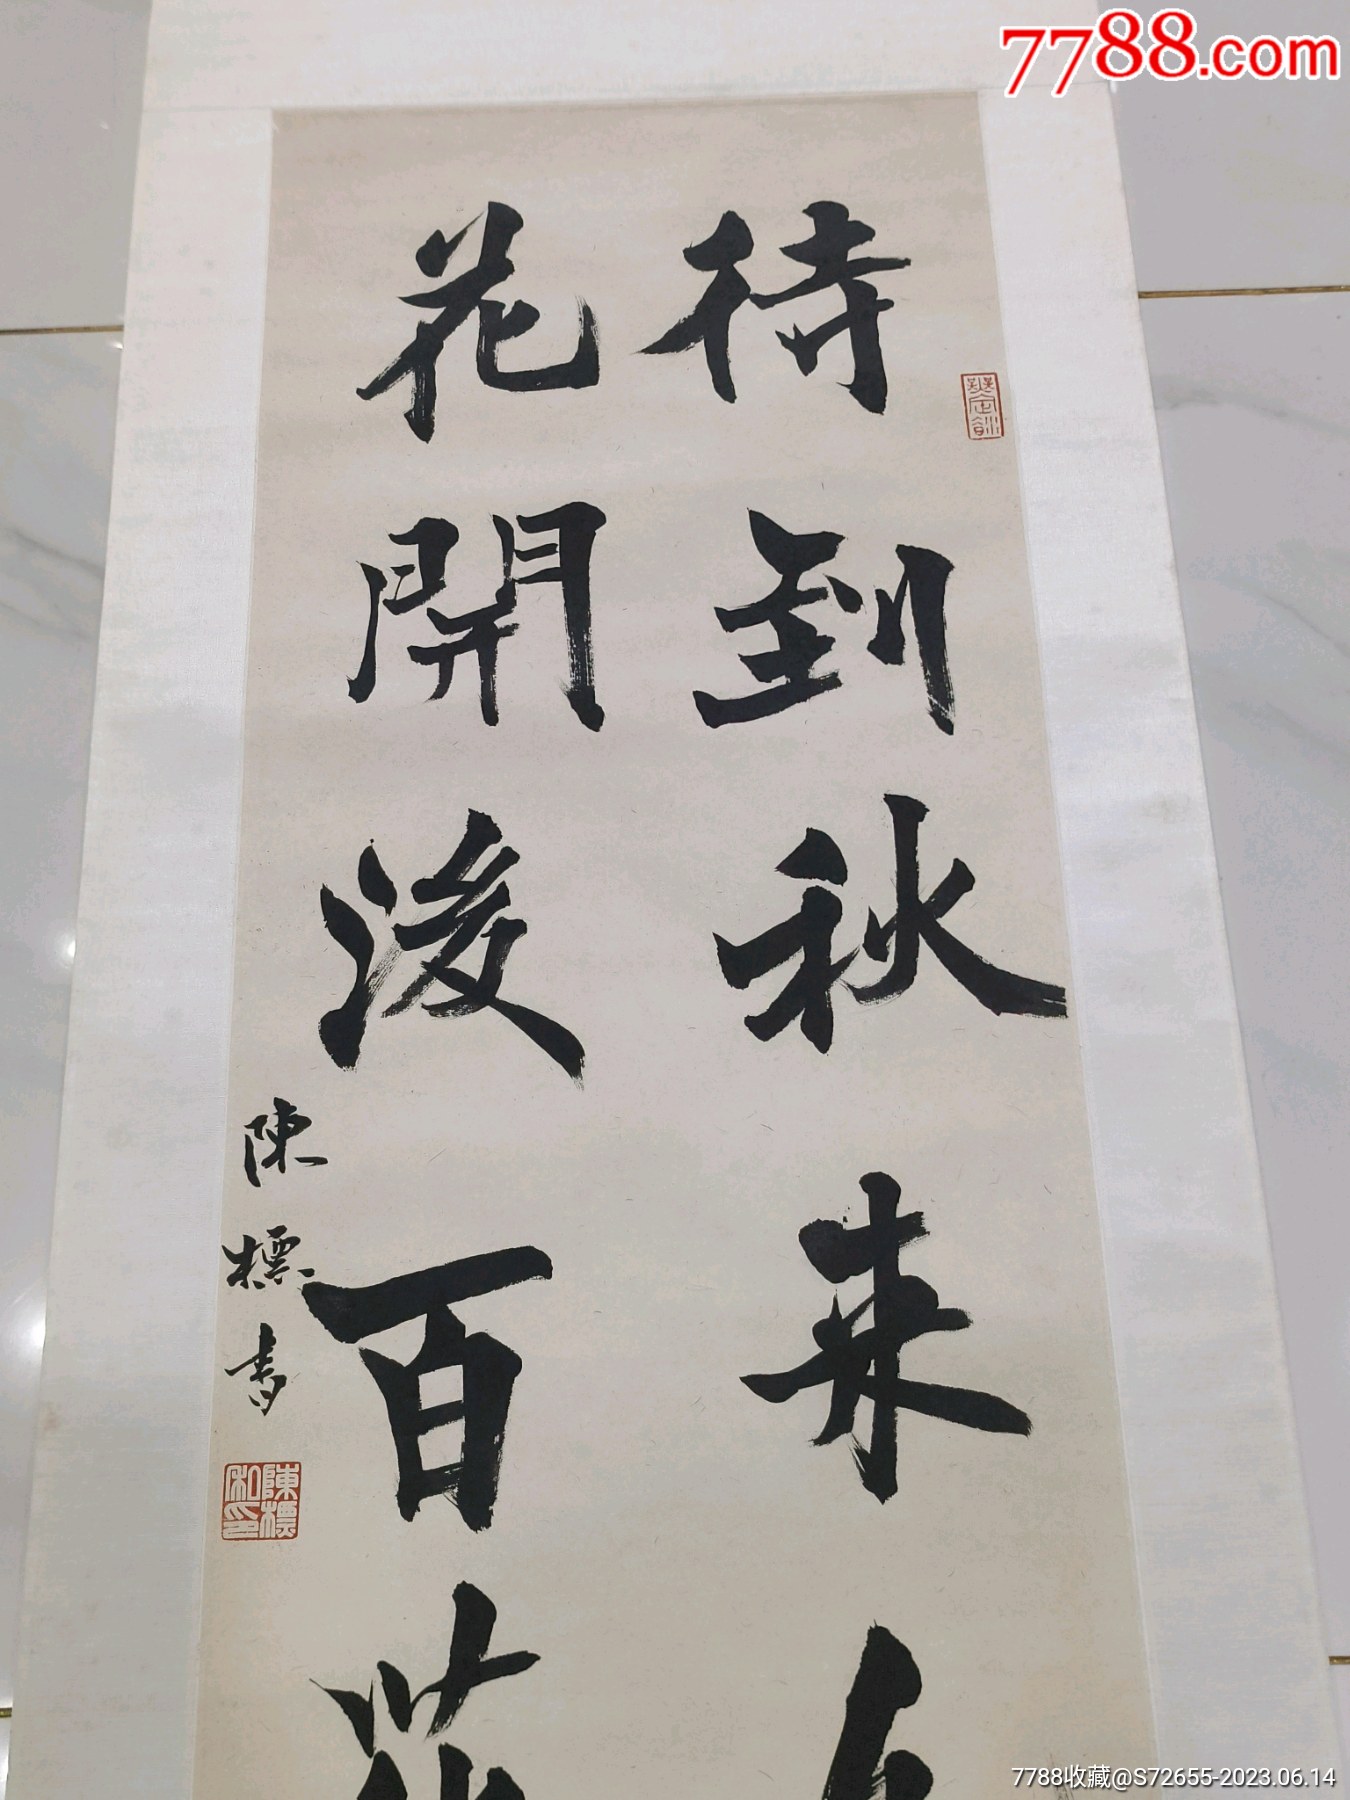 7788.com
待到秋来
花開後百
陳標書
陳標私印
7788收藏@S72655-2023.06.14